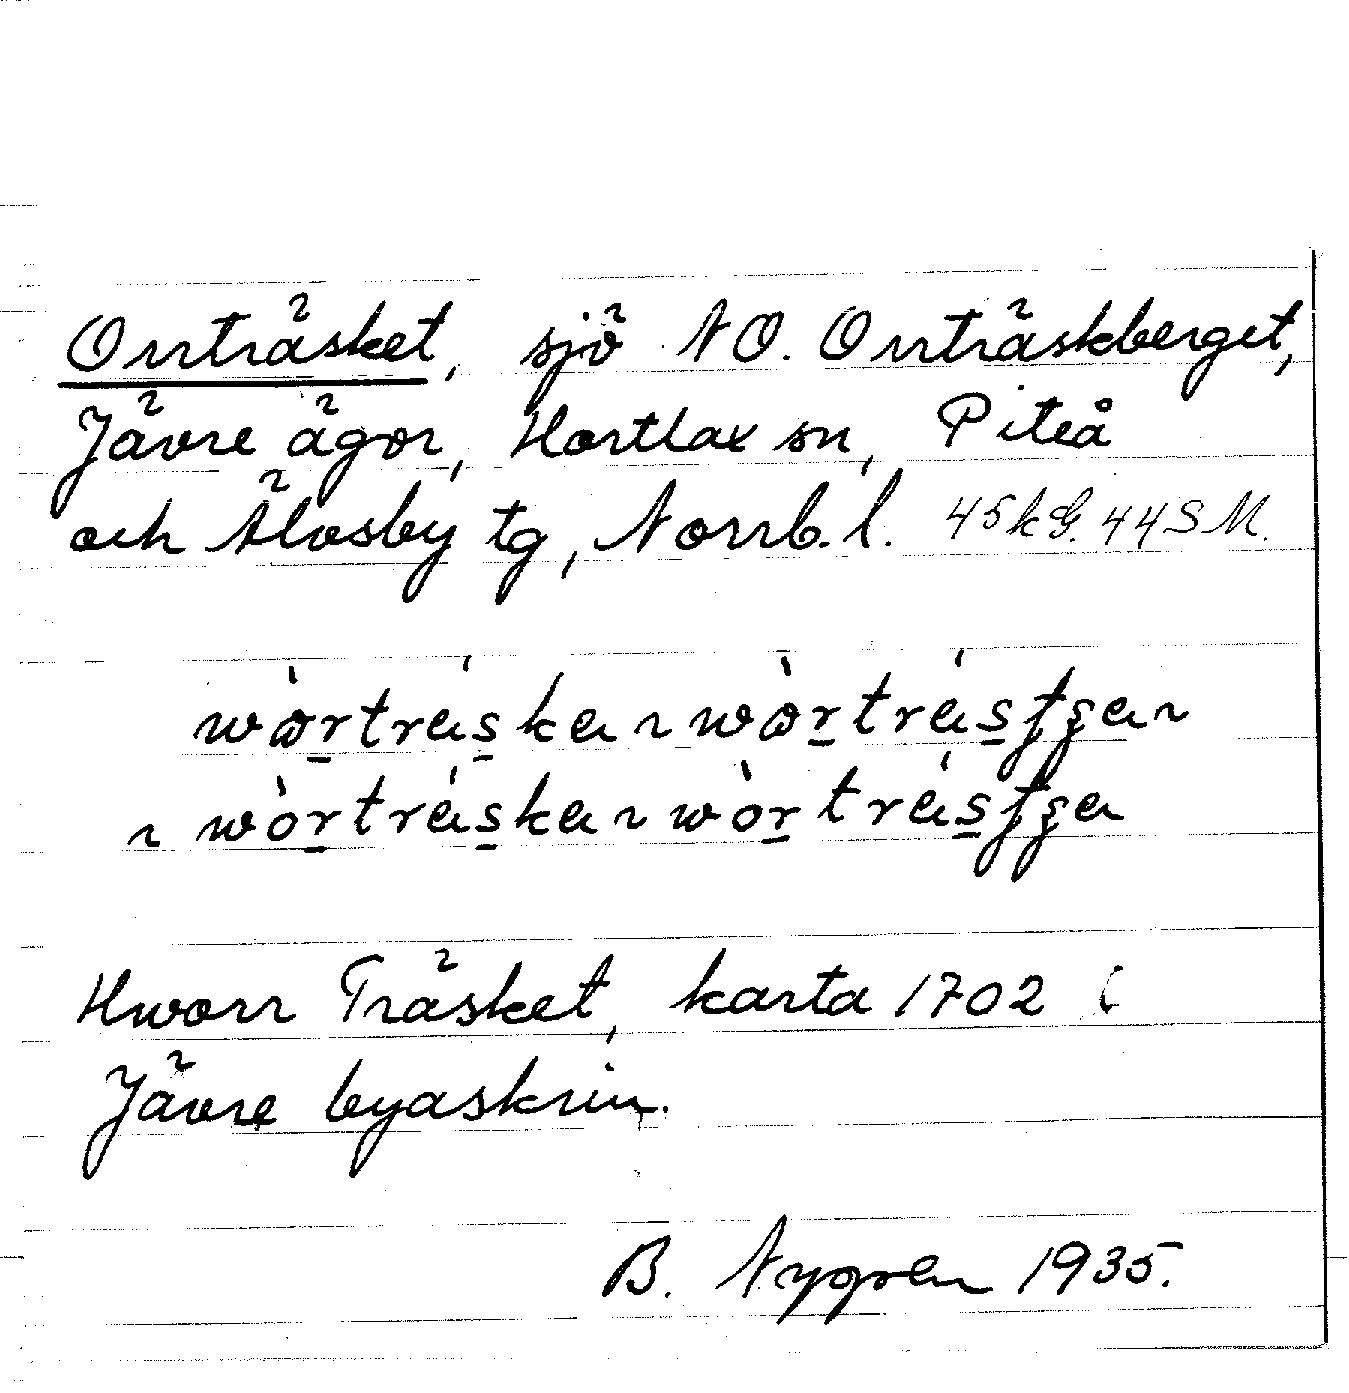 Orrträsket, sjö NO. Orrträskberget,
Jävre ägor, Hortlax sn, Piteå
och Älvsby tg, Norrb. l. 45 k G. 44 S M.
wòrtráska ~ wòrtrástşa ~
~ wòrtráska ~ wòrtrástşa
Hworr Träsket, karta 1702 i
Jävre byaskrin.
B. Nygren 1935.